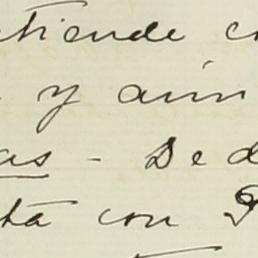 tiende c
y aún
as - De d
ta con P